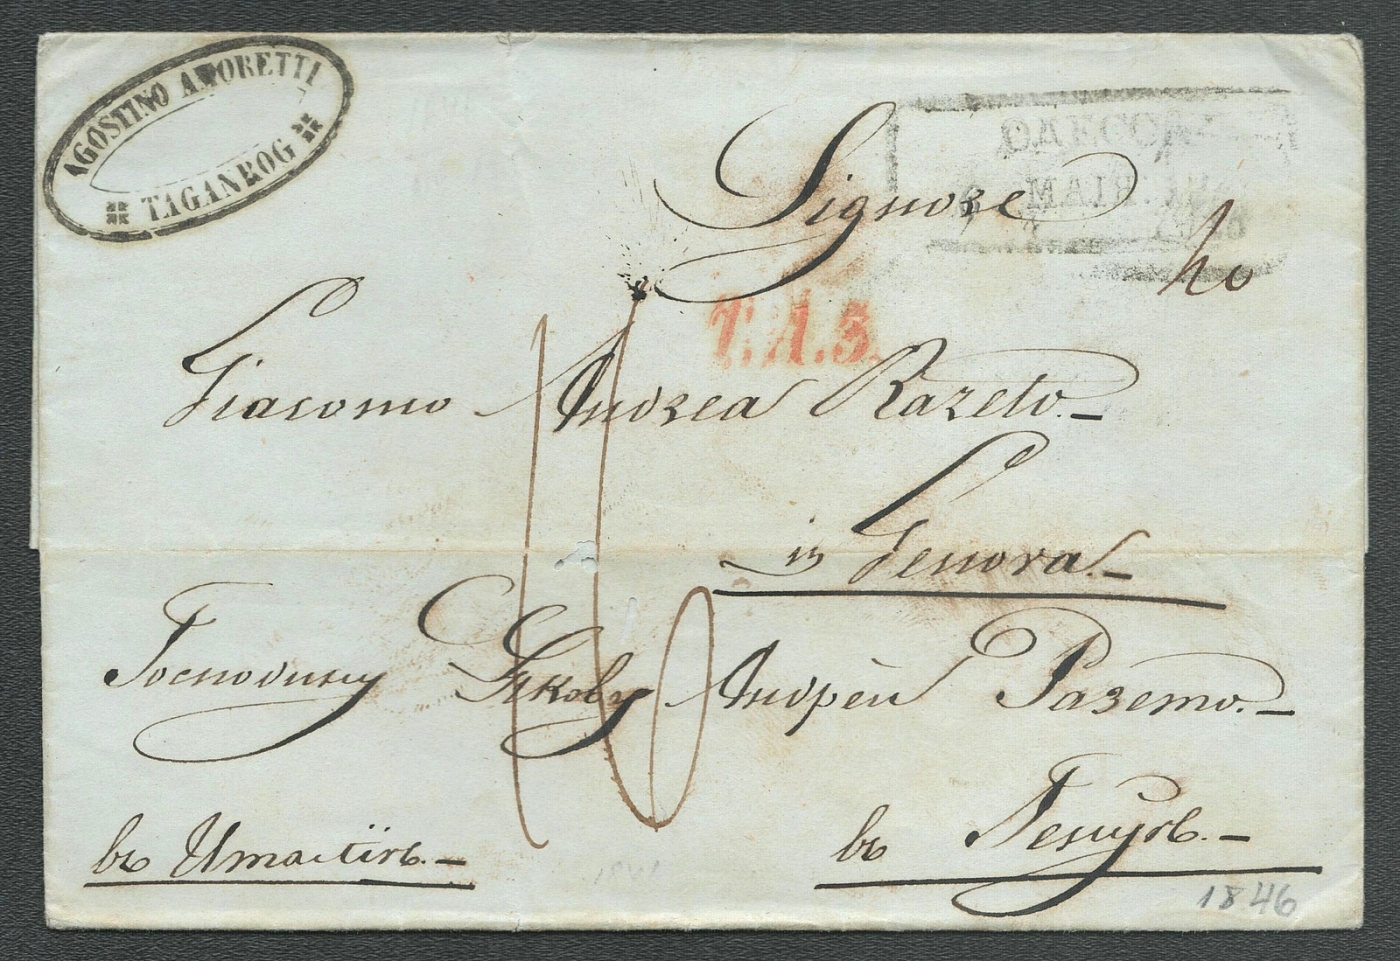 AGOSTINO AMORETTI
TAGANROG
Signore
T.A.3.
Giacomo Andrea Razeto.-
in Genova.-
Господину Якову Андрею Разето.-
въ Италіи.-
въ Генуѣ.-
1846